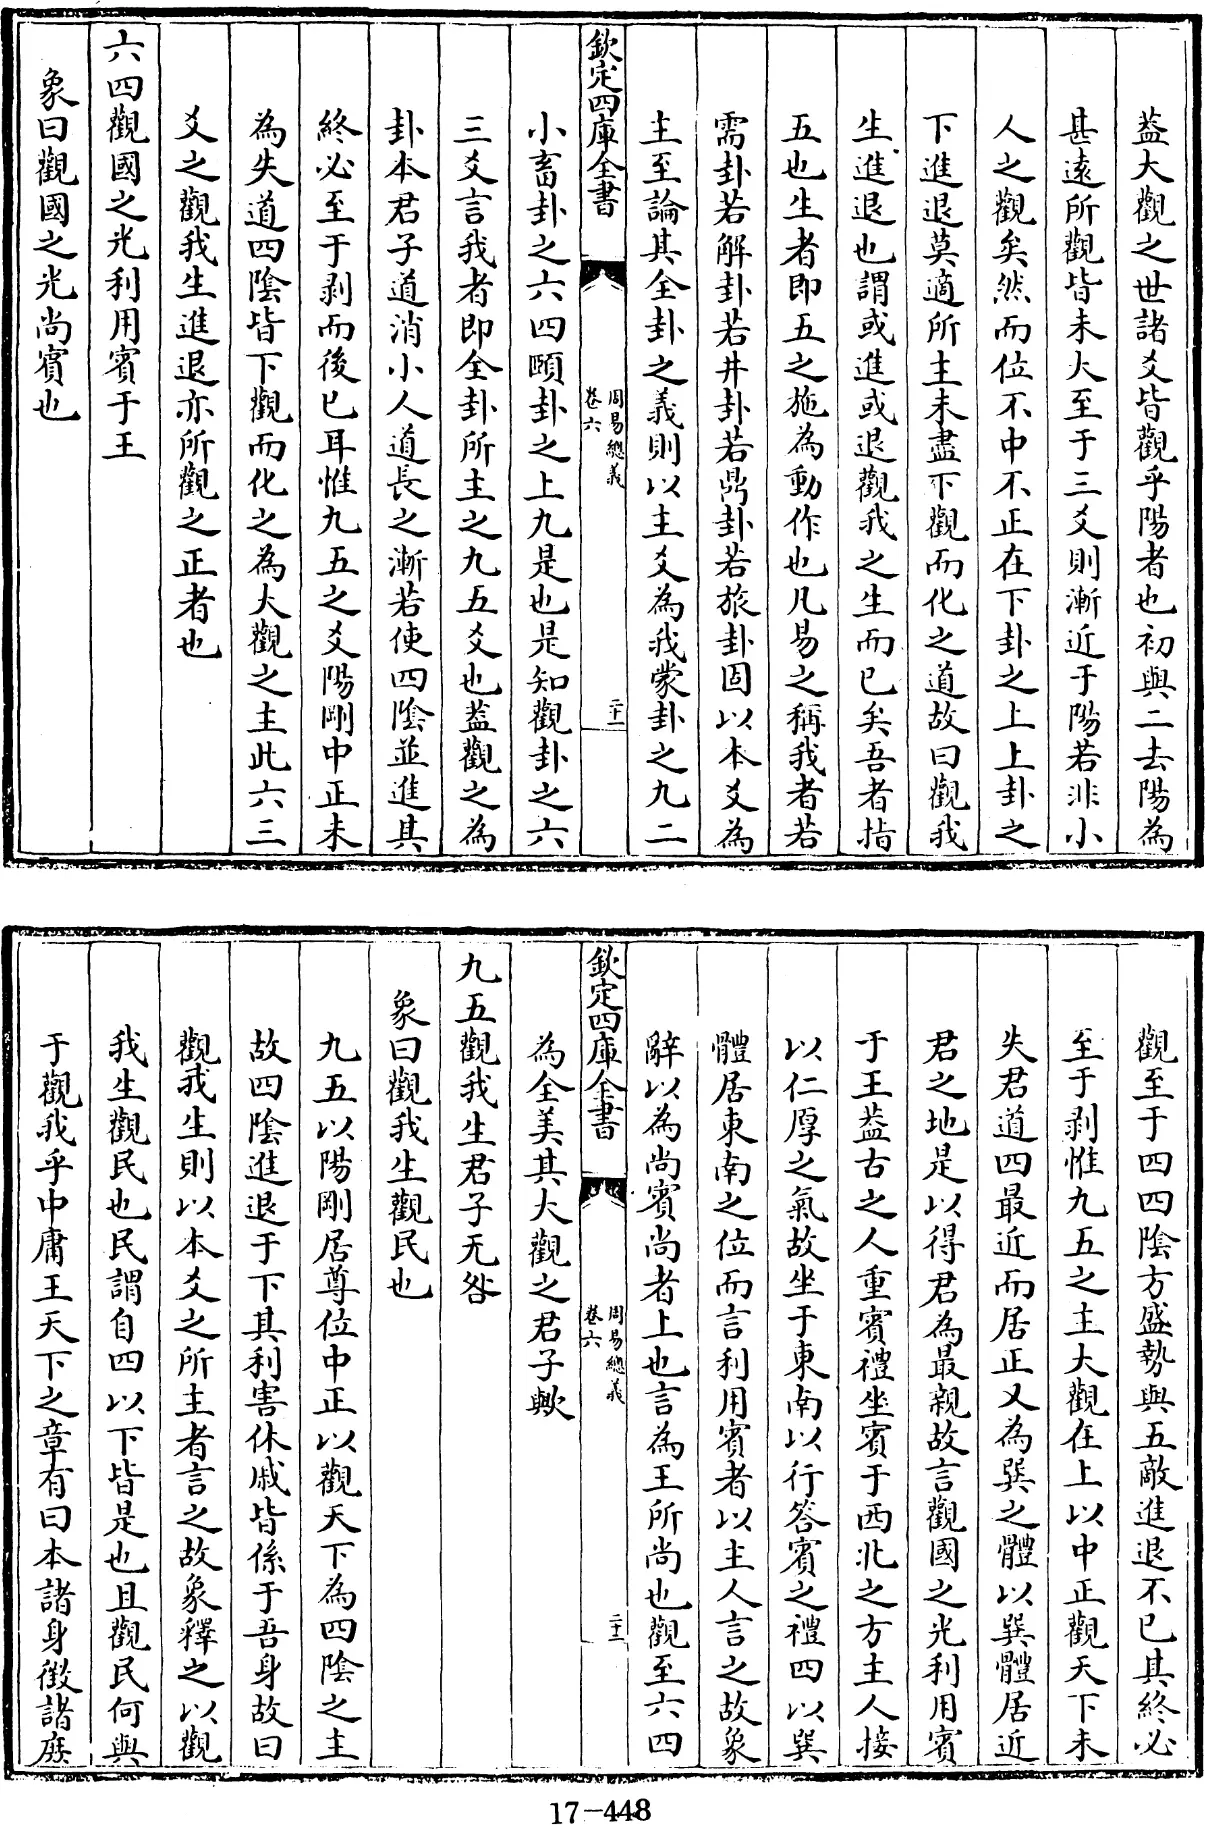 葢大觀之世諸爻皆觀乎陽者也初與二去陽為
甚遠所觀皆未大至于三爻則漸近于陽若非小
人之觀矣然而位不中不正在下卦之上上卦之
下進退莫適所主未盡下觀而化之道故曰觀我
生進退也謂或進或退觀我之生而已矣吾者指
五也生者即五之施為動作也凡易之稱我者若
需卦若解卦若井卦若鼎卦若旅卦固以本爻為
主至論其全卦之義則以主爻為我蒙卦之九二
欽定四庫全書
周易總義
卷六
二十一
小畜卦之六四頤卦之上九是也是知觀卦之六
三爻言我者即全卦所主之九五爻也葢觀之為
卦本君子道消小人道長之漸若使四陰並進其
終必至于剥而後已耳惟九五之爻陽剛中正未
為失道四陰皆下觀而化之為大觀之主此六三
爻之觀我生進退亦所觀之正者也
六四觀國之光利用賓于王
象曰觀國之光尚賓也
觀至于四四陰方盛勢與五敵進退不已其終必
至于剥惟九五之主大觀在上以中正觀天下未
失君道四最近而居正又為巽之體以巽體居近
君之地是以得君為最親故言觀國之光利用賓
于王葢古之人重賓禮坐賓于西北之方主人接
以仁厚之氣故坐于東南以行答賓之禮四以巽
體居東南之位而言利用賓者以主人言之故象
辭以為尚賓尚者上也言為王所尚也觀至六四
欽定四庫全書
周易總義
卷六
二十二
為全美其大觀之君子歟
九五觀我生君子无咎
象曰觀我生觀民也
九五以陽剛居尊位中正以觀天下為四陰之主
故四陰進退于下其利害休戚皆係于吾身故曰
觀我生則以本爻之所主者言之故象釋之以觀
我生觀民也民謂自四以下皆是也且觀民何與
于觀我乎中庸王天下之章有曰本諸身徵諸庶
17-448